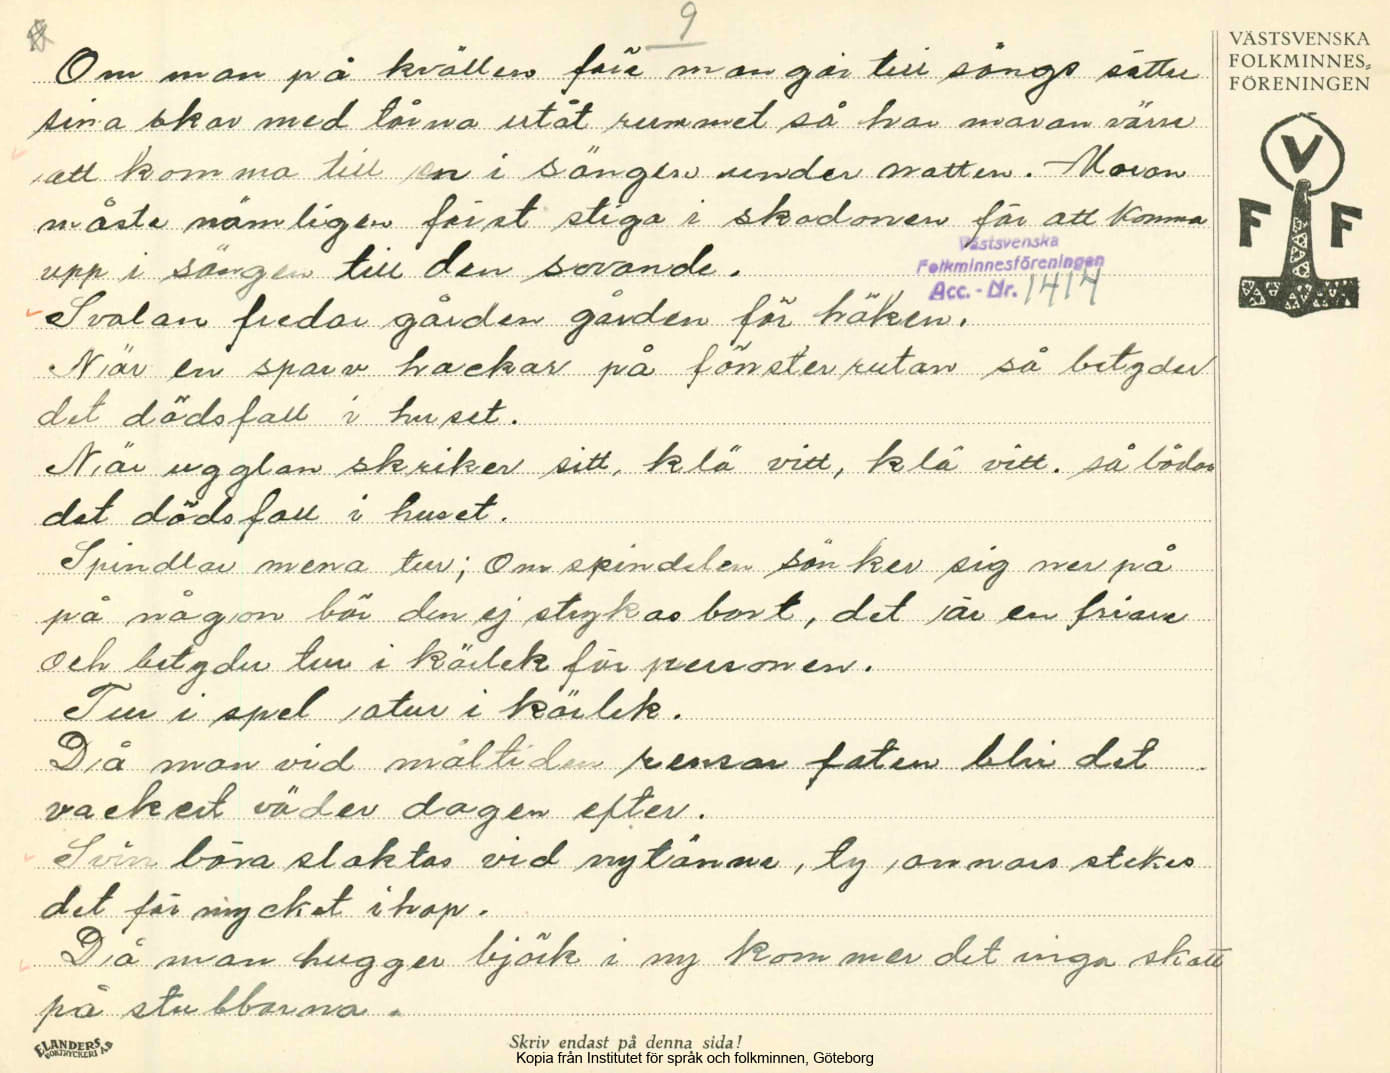 9
Om man på kvällen före man går till sängs sätter
sina skor med tårna utåt rummet så har maran värre
att komma till en i sängen under natten. Maran
måste nämligen först stiga i skodonen för att komma
upp i sängen till den sovande.
Svalan fredar gården gården för höken.
När en sparv hackar på fönsterrutan så betyder
det dödsfall i huset.
När ugglan skriker sitt, klä vitt, klä vitt. så bådar
det dödsfall i huset.
Spindlar mena tur; Om spindelen sönker sig ner på
på någon bör den ej strykas bort, det är en friare
och betyder tur i kärlek för personen.
Tur i spel otur i kärlek.
Då man vid måltiden rensar faten blir det
vackert väder dagen efter.
Svin böra slaktas vid nytänne, ty annars stekes
det för mycket ihop.
Då man hugger björk i ny kommer det inga skott
på stubbarna.
VÄSTSVENSKA
FOLKMINNES=
FÖRENINGEN
V
F F
Västsvenska
Folkminnesföreningen
Acc. - Nr. 1414
ELANDERS
BOKTRYCKERI A.B
Skriv endast på denna sida!
Kopia från Institutet för språk och folkminnen, Göteborg